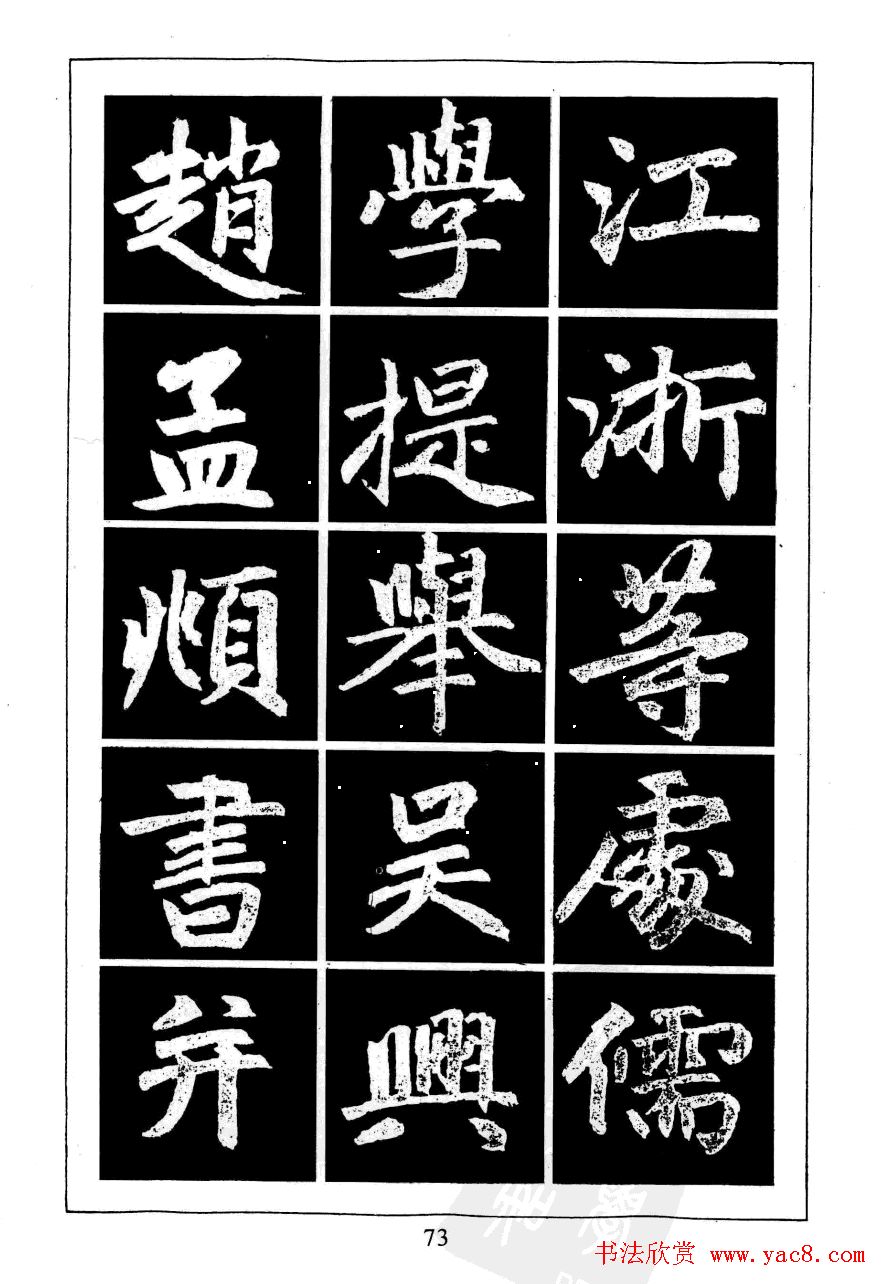 江浙等處儒
學提舉吳興
趙孟頫書并
73
书法欣赏 www.yac8.com